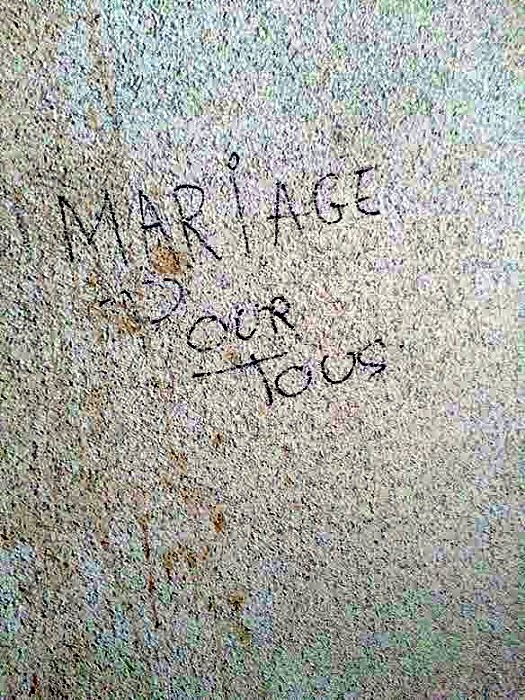 MARiAGE
POUR
TOUS